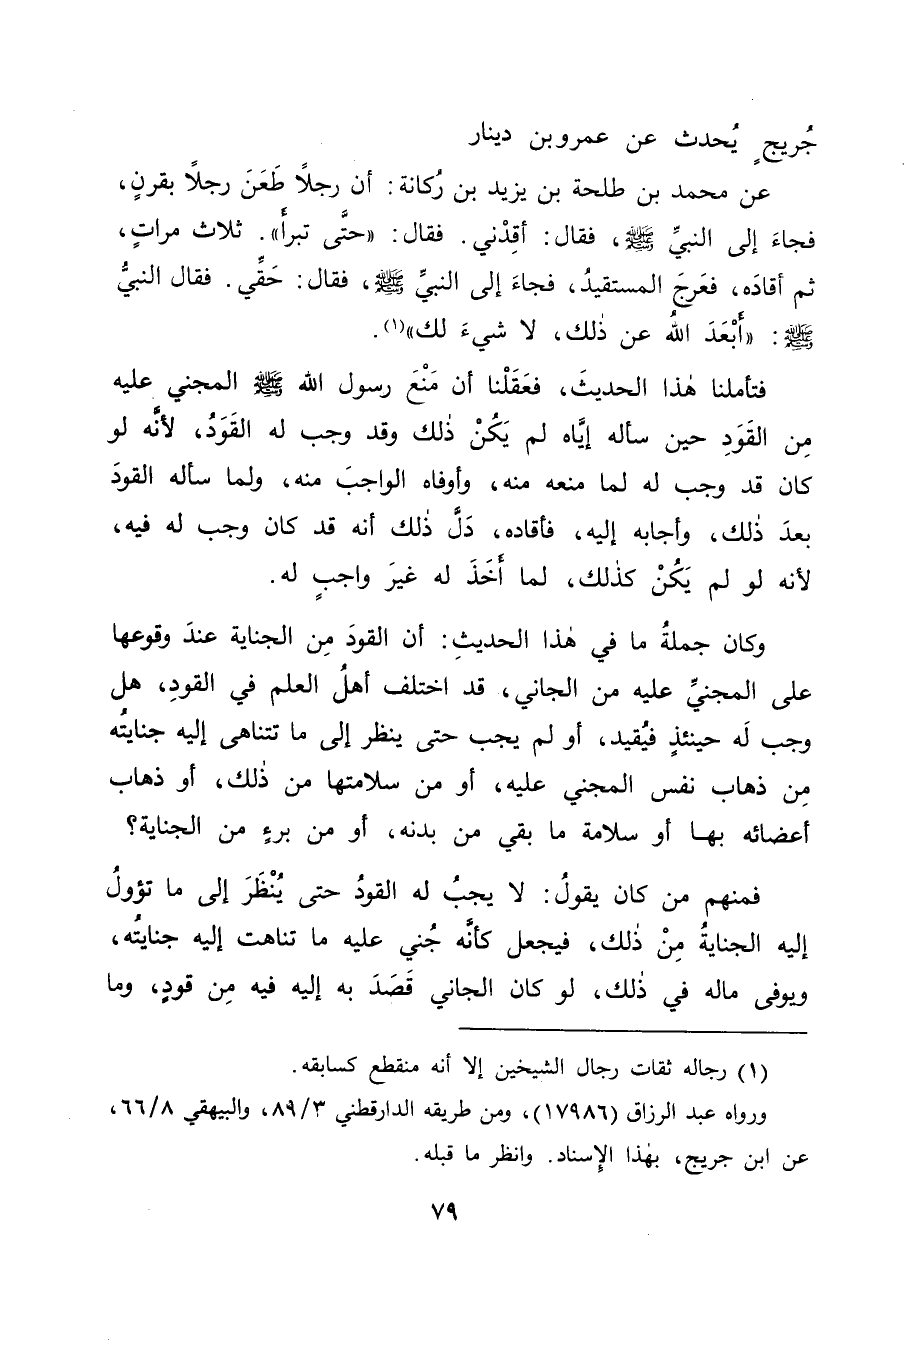 جُريجٍ يُحدث عن عمرو بن دينار
عن محمد بن طلحة بن يزيد بن رُكانة: أن رجلًا طَعَنَ رجلًا بقرنٍ،
فجاءَ إلى النبيِّ ﷺ، فقال: أقِدْني. فقال: «حتَّى تبرأَ». ثلاث مراتٍ،
ثم أقادَه، فعَرِجَ المستقيدُ، فجاءَ إلى النبيِّ ﷺ، فقال: حَقِّي. فقال النبيُّ
ﷺ: «أَبْعَدَ اللهُ عن ذٰلك، لا شيءَ لك»(١).
فتأملنا هٰذا الحديثَ، فعَقَلْنا أن مَنْعَ رسول الله ﷺ المجني عليه
مِن القَوَدِ حين سأله إيَّاه لم يَكُنْ ذٰلك وقد وجب له القَوَدُ، لأنَّه لو
كان قد وجب له لما منعه منه، وأوفاه الواجبَ منه، ولما سأله القودَ
بعدَ ذٰلك، وأجابه إليه، فأقاده، دَلَّ ذٰلك أنه قد كان وجب له فيه،
لأنه لو لم يَكُنْ كذٰلك، لما أَخَذَ له غيرَ واجبٍ له.
وكان جملةُ ما في هٰذا الحديثِ: أن القودَ مِن الجناية عندَ وقوعها
على المجنيِّ عليه من الجاني، قد اختلف أهلُ العلم في القودِ، هل
وجب لَه حينئذٍ فيُقيد، أو لم يجب حتى ينظر إلى ما تتناهى إليه جنايتُه
مِن ذهاب نفس المجني عليه، أو من سلامتها من ذٰلك، أو ذهاب
أعضائه بها أو سلامة ما بقي من بدنه، أو من برءٍ من الجناية؟
فمنهم من كان يقولُ: لا يجبُ له القودُ حتى يُنْظَرَ إلى ما تؤولُ
إليه الجنايةُ مِنْ ذٰلك، فيجعل كأنَّه جُني عليه ما تناهت إليه جنايتُه،
ويوفى ماله في ذٰلك، لو كان الجاني قَصَدَ به إليه فيه مِن قودٍ، وما
(١) رجاله ثقات رجال الشيخين إلا أنه منقطع كسابقه.
ورواه عبد الرزاق (١٧٩٨٦)، ومن طريقه الدارقطني ٨٩/٣، والبيهقي ٦٦/٨،
عن ابن جريج، بهٰذا الإسناد. وانظر ما قبله.
٧٩